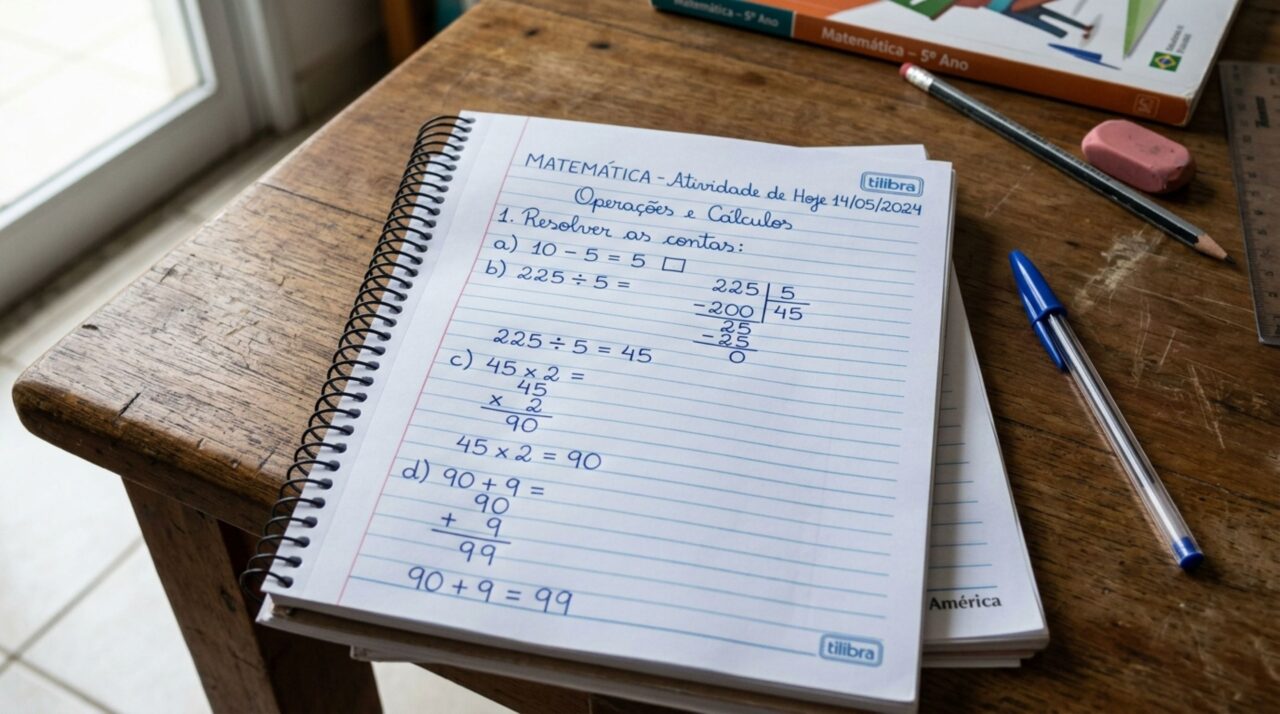 Matemática – 5º Ano
Matemática – 5º Ano
tilibra
MATEMÁTICA - Atividade de Hoje 14/05/2024
Operações e Cálculos
1. Resolver as contas:
a) 10 - 5 = 5 □
b) 225 ÷ 5 =
225 | 5
-200 | 45
25
-25
0
225 ÷ 5 = 45
c) 45 x 2 =
45
x 2
90
45 x 2 = 90
d) 90 + 9 =
90
+ 9
99
90 + 9 = 99
América
tilibra